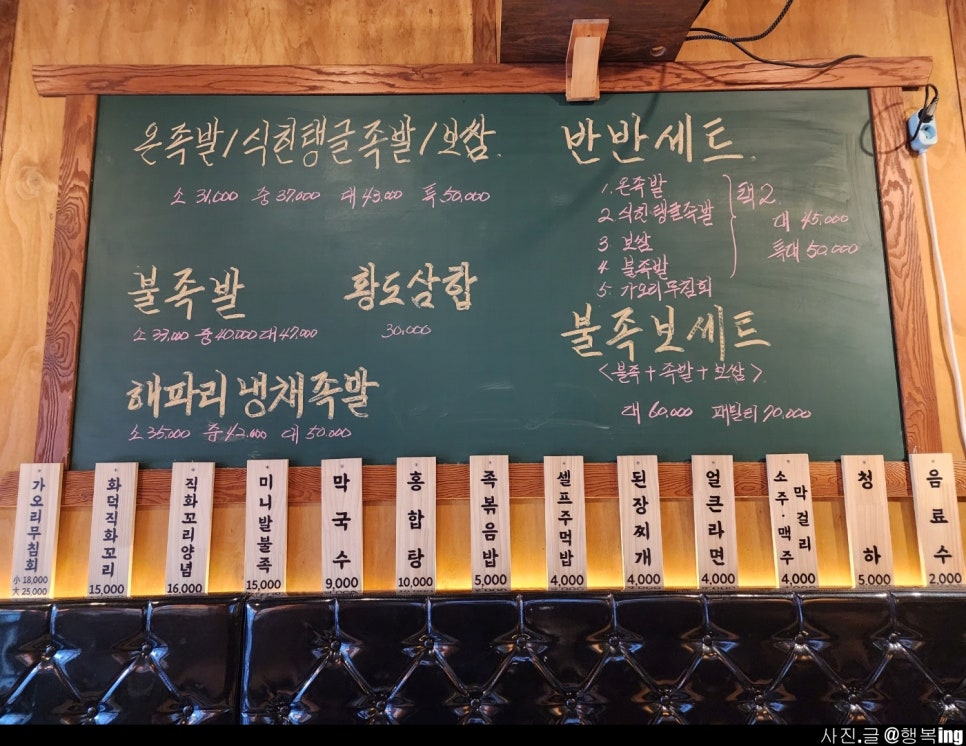 온족발/식힌탱글족발/보쌈.
소 31,000 중 37,000 대 43,000 특 50,000
불족발
소 33,000 중 40,000 대 47,000
황도삼합
30,000
해파리냉채족발
소 35,000 중 42,000 대 50,000
반반세트.
1. 온족발
2. 식힌탱글족발
3. 보쌈
4. 불족발
5. 가오리무침회
택2
대 45,000
특대 50,000
불족보세트
<불족+족발+보쌈>
대 60,000 패밀리 70,000
가오리무침회
小 18,000
大 25,000
화덕직화꼬리
15,000
직화꼬리양념
16,000
미니발불족
15,000
막국수
9,000
홍합탕
10,000
족볶음밥
5,000
셀프주먹밥
4,000
된장찌개
4,000
얼큰라면
4,000
막걸리
소주·맥주
4,000
청하
5,000
음료수
2,000
사진.글 @행복ing